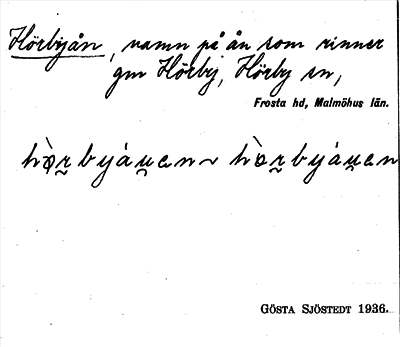 Hörbyån, namn på ån som rinner
gm Hörby, Hörby sn,
Frosta hd, Malmöhus län.
hò̤r̤byáu̯ɛn ~ hò̤r̤byáu̯ɛn
GÖSTA SJÖSTEDT 1936.